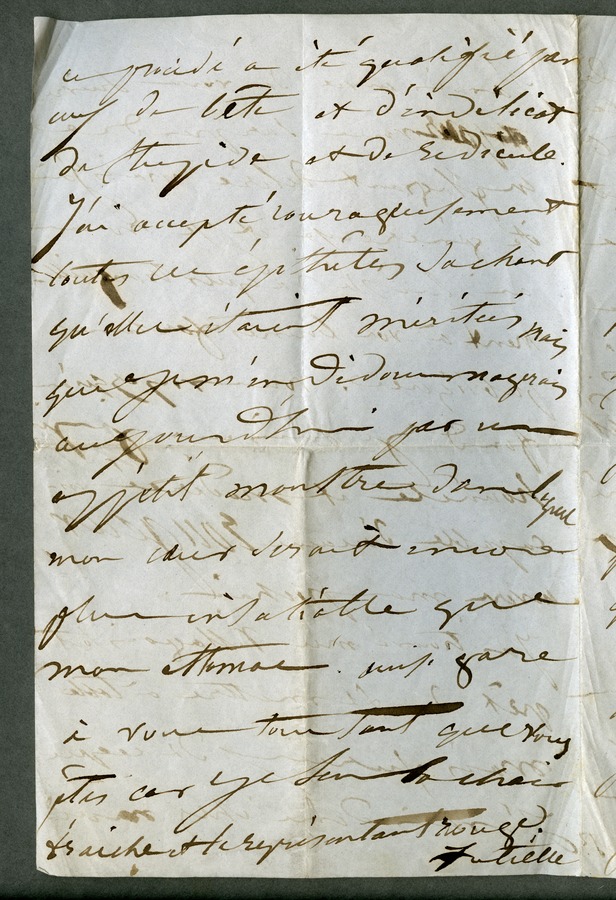 ce procédé a été qualifié par
de bête et d'indélicat
de stupide et de redicule.
J'ai accepté courageusement
toutes ces épithêtes sachant
qu'elles étaient méritées mais
que je m'en dédommagerais
aujourd'hui par un
appétit monstre dans lequel
mon cœur serait encore
plus insatiable que
mon estomac. ainsi gare
à vous tous tant que vous
êtes car je sens la chair
fraiche et le représentant rouge.